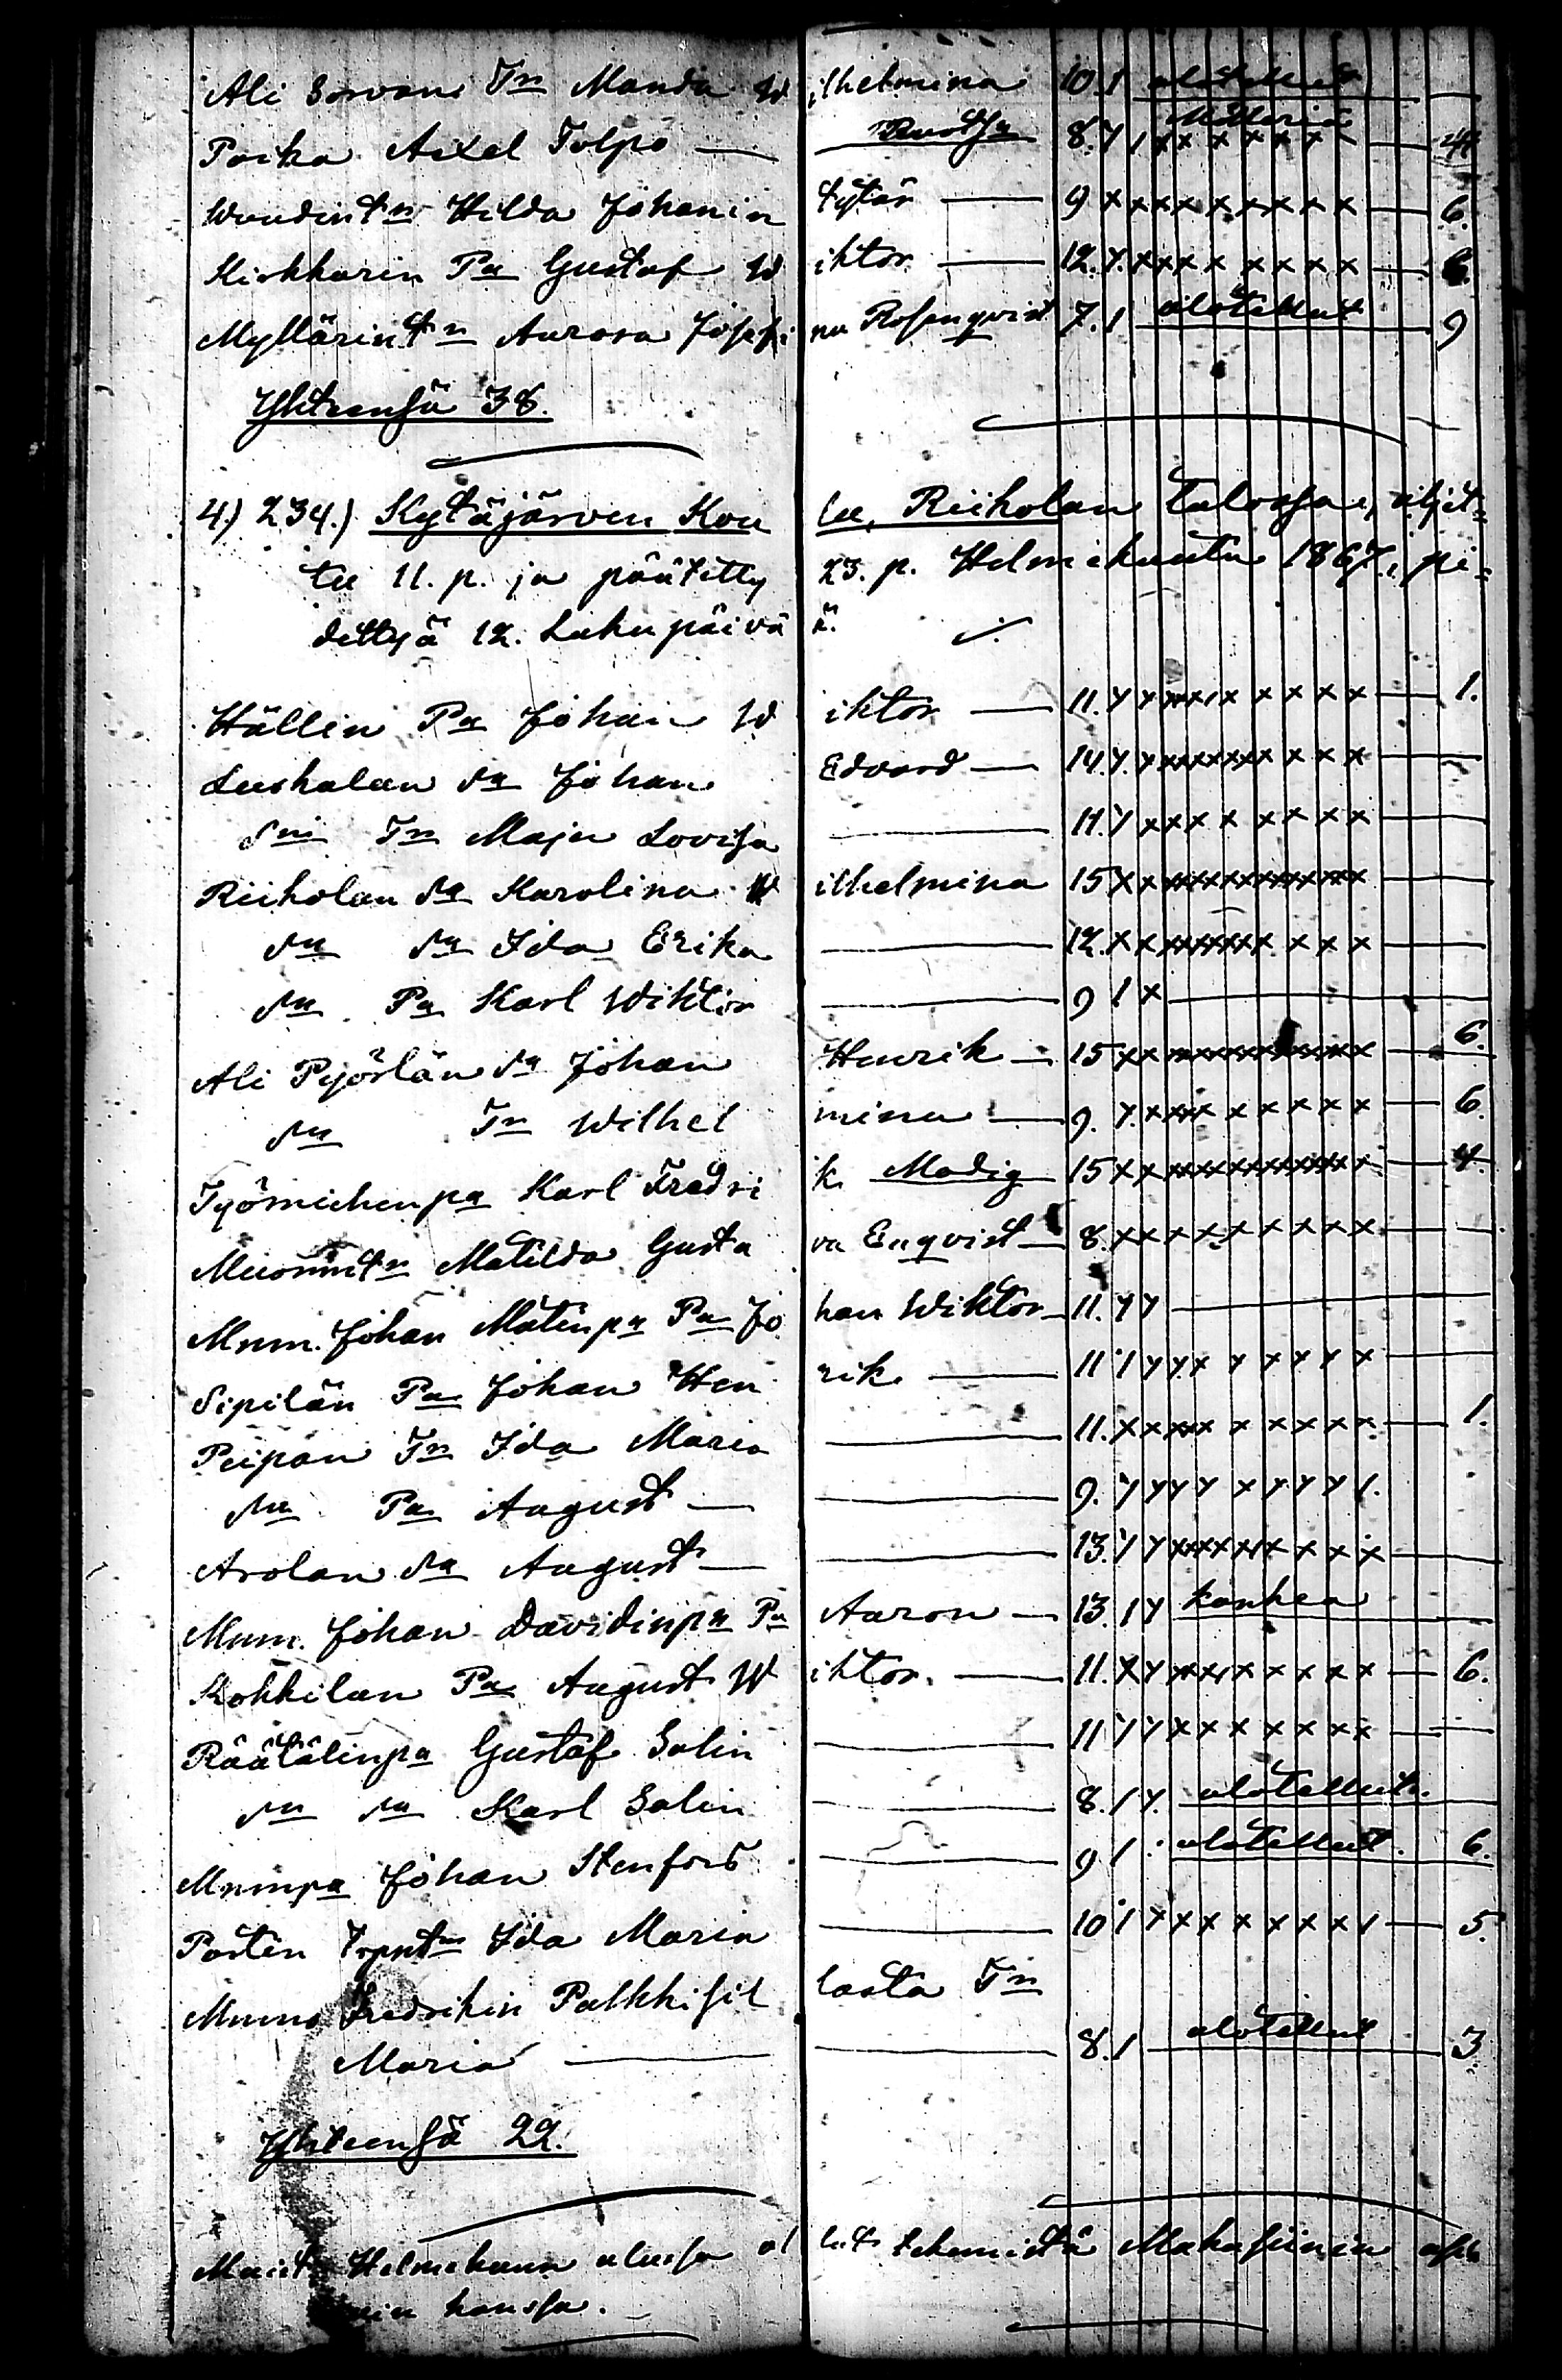 Ali Sorvan Tr Manda Wilhelmina 10.1 alotellut
Poika Axel Tolpo — Ruotsa 8. y 1 x x x x x x x — Mälleriä
Woudintr Hilda Johanin tytär — 9 x x x x x x x x x — 6.
Kirkkarin Pa Gustaf Wiktor — 12. y. x x x x x x x x — 6.
Myllärintr Aurora Josefina Rosenqvist 7.1 alotellut 9
Yhteensä 38.
4.) 234.) Kytäjärven Koulu, Riiholan talossa, aljet=
tu 11. p. ja päätetty 23. p. Helmikuuta 1867., pi=
dettyä 12. Lukupäivää.
Hällin Pa Johan Wiktor — 11. y y x x x x x x x x x — 1.
Luskalan Sa Johan Edvard — 14. y. y x x x x x x x x x x —
Sm Tr Maja Lovisa — 11. y x x x x x x x x —
Riiholan Sa Karolina Wilhelmina 15 x x x x x x x x x x x x —
Sa Sa Ida Erika — 12. x x x x x x x x x x x —
Sa Pa Karl Wiktor — 9 1 x —
Ali Pyörlän Sa Johan Henrik — 15 x x x x x x x x x x x x — 6.
Sa Tr Wilhelmina — 9. y. x x x x x x x x x — 6.
Työmiehenpa Karl Fredrik Modig 15 x x x x x x x x x x x x — 4.
Muorintr Matilda Gustava Enqvist — 8. x x x x x x x x x —
Mnm. Johan Matinpa Pa Johan Wiktor — 11. y y —
Sipilän Pa Johan Henrik — 11 1 y y x y x x y x —
Peipan Tr Ida Maria — 11. x x x x x x x x x x — 1.
Sa Pa August — 9. y y y y x y y y 1.
Arolan Sa August — 13. y y x x x x x x x x x x —
Mnm. Johan Davidinpa Pa Aaron — 13. 1 y kankea —
Kokkilan Pa August Wiktor. — 11. x y x x x x x x x x — 6.
Räätälinpa Gustaf Salin — 11 y y x x x x x x x —
Sa Sa Karl Salin — 8. 1 y. alotellut.
Mnmpa Johan Stenfors — 9 1 alotellut. 6.
Postin Trpntr Ida Maria — 10 1 x x x x x x x 1 — 5.
Mnmo Fredrikin Palkkisilasta Tr
Maria — 8. 1 alotellut 3
Yhteensä 22.
Helmekuun alussa Makasiinin
kanssa.